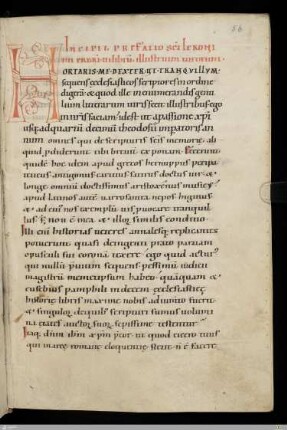 INCIPIT PREFATIO SCI IERONI
MI PRBRI IN LIBRŪ ILLUSTRIUM UIRORUM
HORTARIS ME DEXTER UT TRANQUILLUM
sequens ecclesiasticos scriptores in ordinē
digerā & quod ille in enumerandis gen
lium litterarum uiris fecit illustribus ego
in nr̄is faciam id est ut a passione xp̄i
usq; ad quartū decimū theodosii imperatoris an
num omnes qui de scripturis scis memoriæ ali
quid prodiderunt tibi breuiter exponam
quidē hoc idem apud grecos hermippus peripa
teticus antigonus caristius satirus doctus uir &
longe omniū doctissimus aristoxenus musicus
apud latinos autē uarro santra nepos hyginus
& ad cuius nos exemplū uis prouocare tranquil
lus sed non ē mea & illoꝝ similis conditio
Illi enī historias ueteres annalesq; replicantes
potuerunt quasi de ingenti prato paruam
opusculi sui coronā texere ego quid acturus
qui nullū preuiū sequens pessimū
magistrū memetipsum habeo quāquam &
eusebius pamphili in decem ecclesiasticę
historię libris maximo nobis adiumto fuerit
& singuloꝝ de quib; scripturi sumus uolumi
na ętates auctoꝝ suoꝝ sepissime testentur
Itaq; dn̄m ihm̄ xp̄m p̄cor ut quod cicero tuus
qui in arce romanę eloquentię stetit n̄ ē facere